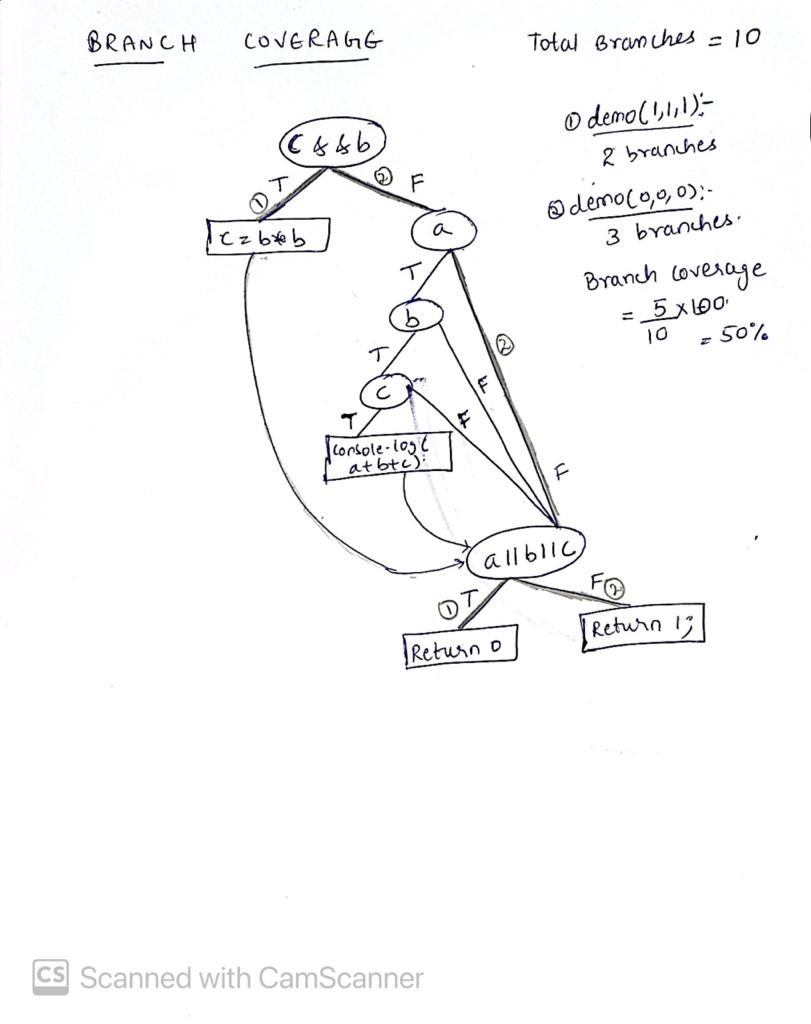 BRANCH COVERAGE
Total Branches = 10
① demo(1,1,1):-
2 branches
② demo(0,0,0):-
3 branches.
Branch coverage
= 5 x 100
10
= 50%
C && b
① T
② F
c = b*b
a
T
b
②
T
F
C
T
F
console.log(
a+b+c);
F
a||b||c
① T
F ②
Return 0
Return 1;
CS Scanned with CamScanner